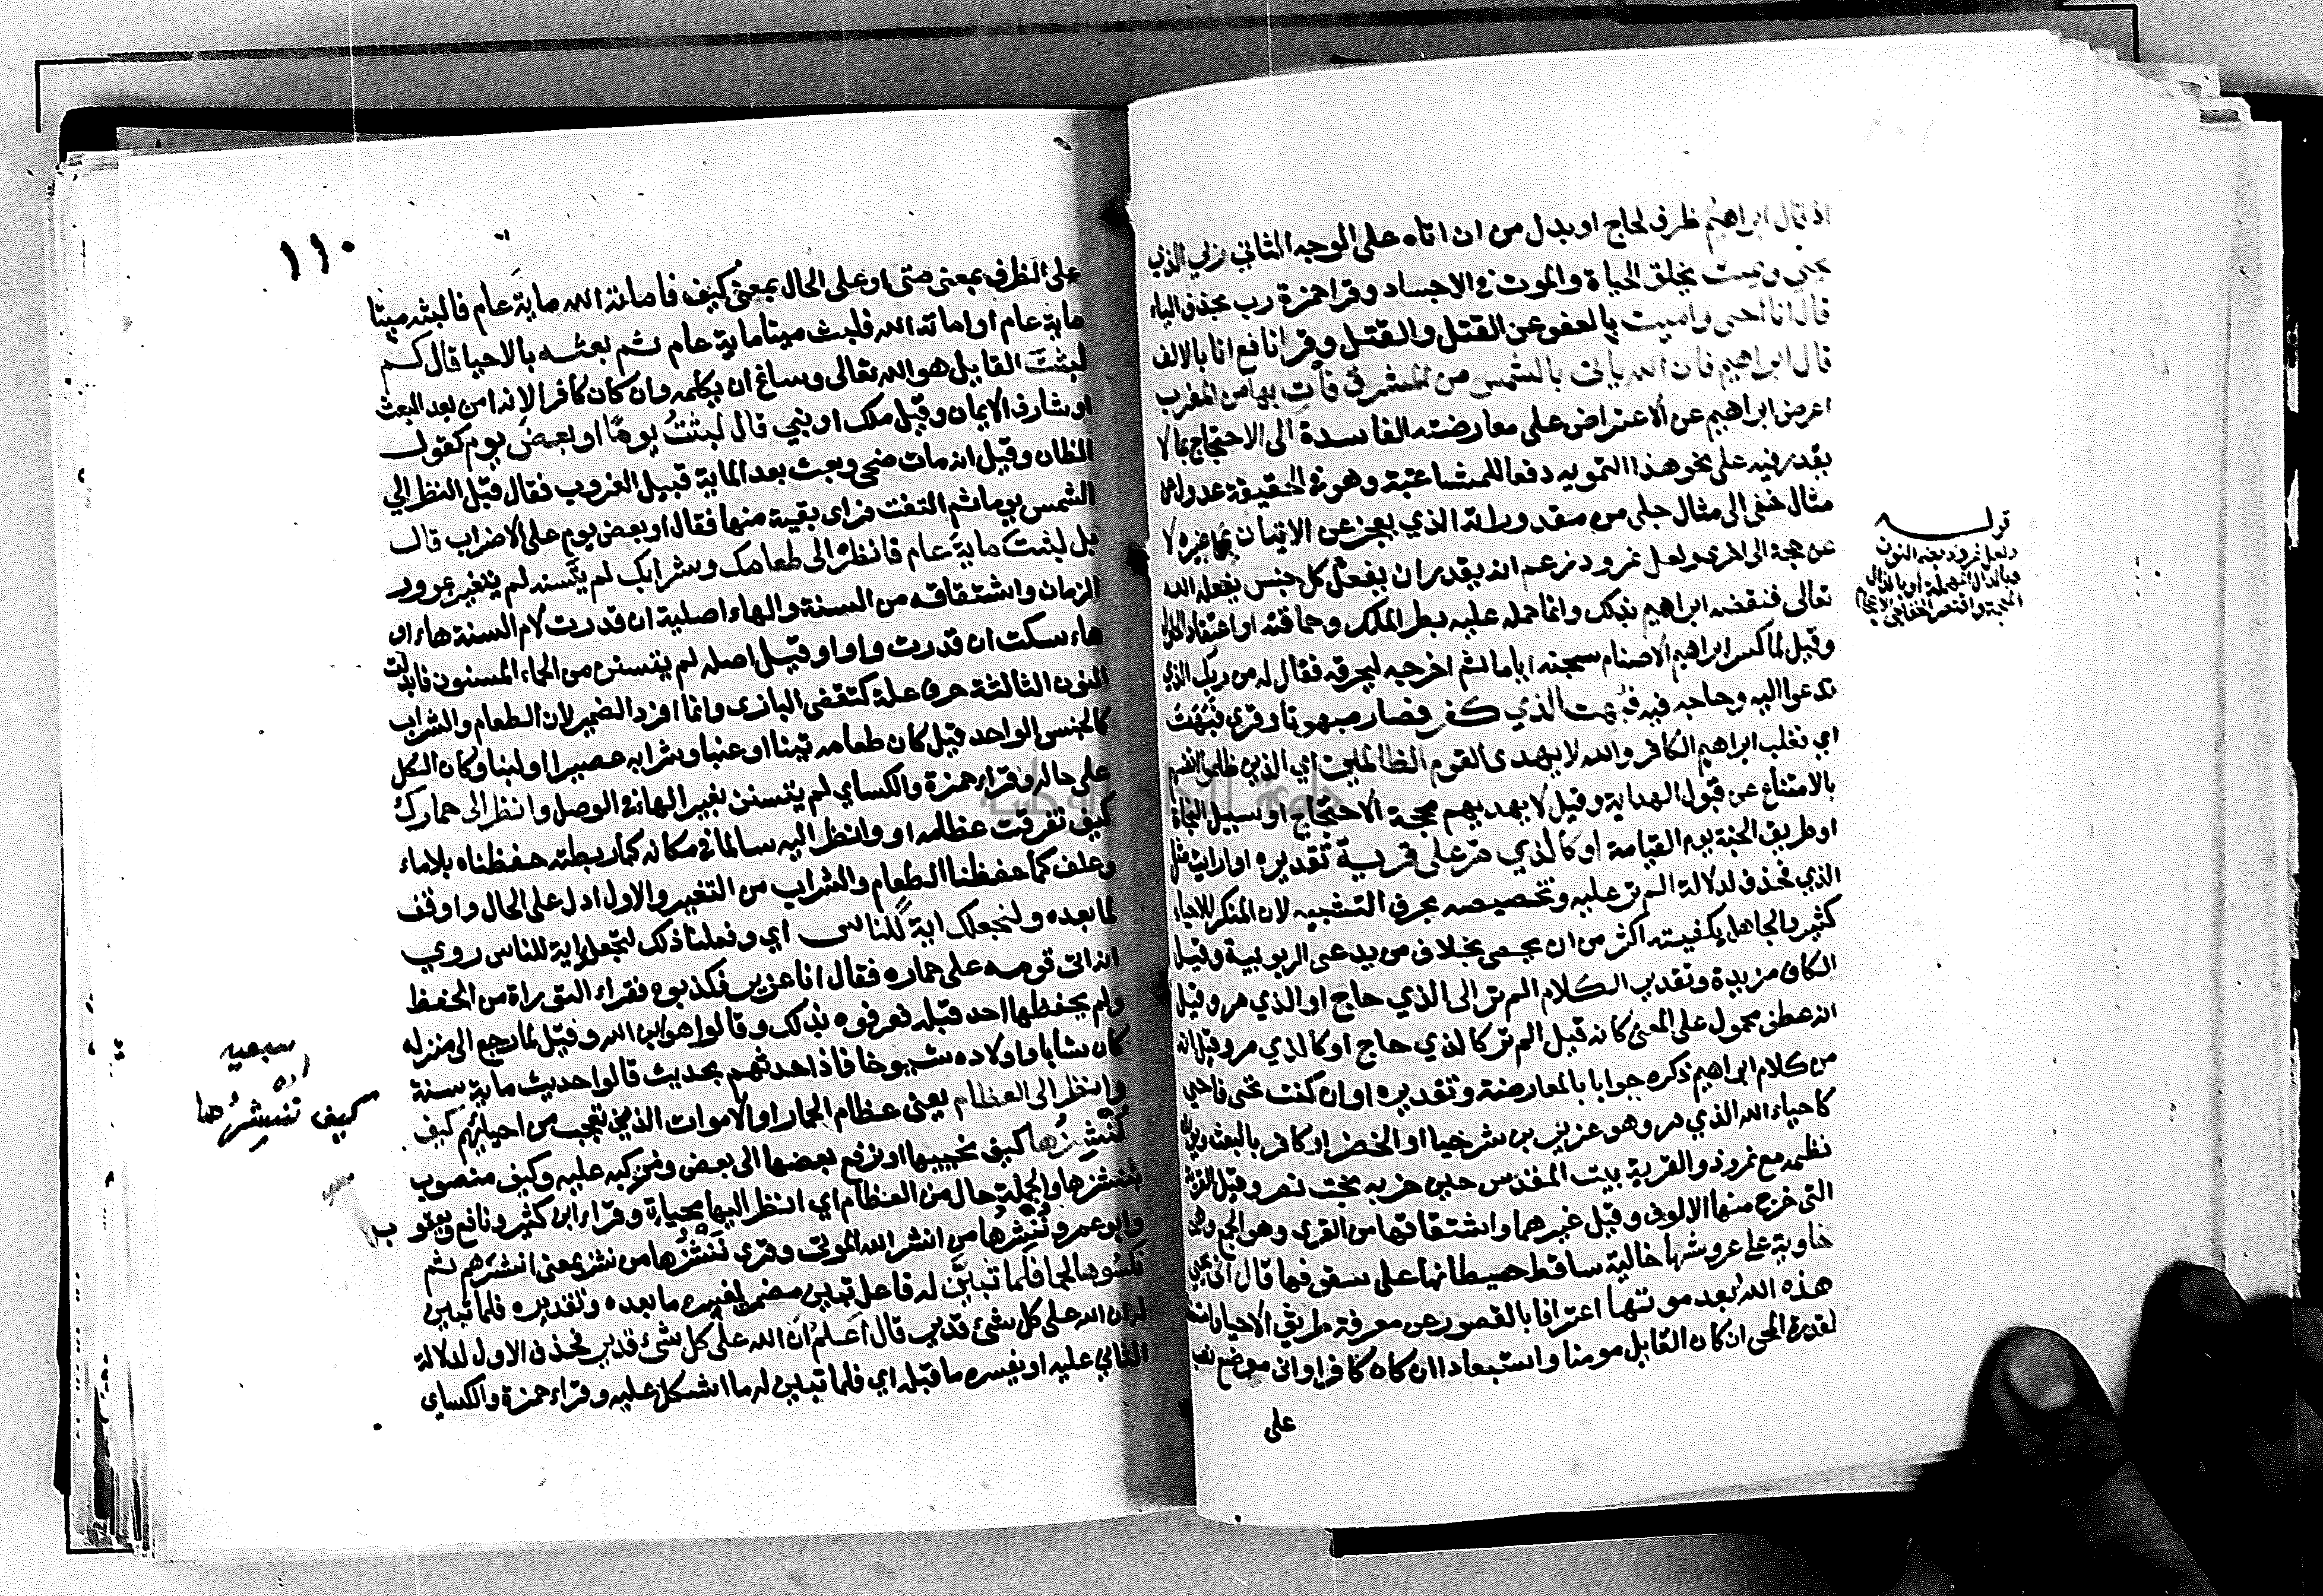 اذ قال ابراهيم ظرف لحاج او بدل من ان اتاه على الوجه الثاني ربي الذي
يحيي ويميت بخلق الحياة والموت في الاجساد وقرا حمزة رب بحذف الياء
قال انا احيى واميت بالعفو عن القتل والقتل وقرا نافع انا بالالف
قال ابراهيم فان الله ياتى بالشمس من المشرق فأت بها من المغرب
اعرض ابراهيم عن الاعتراض على معارضته الفاسدة الى الاحتجاج بما لا
يقدر فيه على نحو هذا التمويه دفعا للمشاغبة وهو في الحقيقة عدول عن
مثال خفى الى مثال جلى من مقدوراته الذي يعجز عن الاتيان بها غيره لا
عن حجة الى اخرى ولعل نمرود زعم انه يقدر ان يفعل كل جنس يفعله الله
تعالى فنقضه ابراهيم بذلك وانما حمله عليه بطر الملك وحماقته او اعتقاد الحلول
وقيل لما كسر ابراهيم الاصنام سجنه اياما ثم اخرجه ليحرقه فقال له من ربك الذي
تدعوا اليه وحاجه فيه فبهت الذي كفر فصار مبهوتا وقرى فبهت
اي فغلب ابراهيم الكافر والله لا يهدى القوم الظالمين اي الذين ظلموا انفسهم
بالامتناع عن قبول الهداية وقيل لا يهديهم محجة الاحتجاج او سبيل النجاة
او طريق الجنة يوم القيامة او كالذي مر على قرية تقديره او ارايت مثل
الذي فحذف لدلالة الم تر عليه وتخصيصه بحرف التشبيه لان المنكر للاحياء
كثير والجاهل بكيفيته اكثر من ان يحصى بخلاف من يدعى الربوبية وقيل
الكاف مزيدة وتقدير الكلام الم تر الى الذي حاج او الذي مر وقيل
انه عطف محمول على المعنى كانه قيل الم تر كالذي حاج او كالذي مر وقيل انه
من كلام ابراهيم ذكره جوابا بالمعارضة وتقديره او ان كنت تحى فاحيى
كاحياء الله الذي مر وهو عزير بن شرخيا او الخضر او كافر بالبعث ويؤيده
نظمه مع نمروذ والقرية بيت المقدس حين خربه بخت نصر وقيل القرية
التى خرج منها الالوف وقيل غيرهما واشتقاقها من القرى وهو الجمع وهى
خاوية على عروشها خالية ساقط حيطانها على سقوفها قال انى يحيى
هذه الله بعد موتها اعترافا بالقصور عن معرفة طريق الاحيا واستعظاما
لقدرة المحى ان كان القايل مومنا واستبعادا ان كان كافرا وانى موضع نصب
على
قوله
ولعل نمروذ بضم النون
وبالدال المهملة او بالذال
١١٠
على الظرف بمعنى متى او على الحال بمعنى كيف فاماته الله ماية عام فالبثه ميتا
ماية عام او اماته الله فلبث ميتا ماية عام ثم بعثه بالاحيا قال كم
لبثت القايل هو الله تعالى وساغ ان يكلمه وان كان كافرا لانه امن بعد البعث
او شارف الايمان وقيل ملك او نبي قال لبثت يوما او بعض يوم كقول
الظان وقيل انه مات ضحى وبعث بعد الماية قبيل الغروب فقال قبل النظر الى
الشمس يوما ثم التفت فراى بقية منها فقال او بعض يوم على الاضراب قال
بل لبثت ماية عام فانظر الى طعامك وشرابك لم يتسنه لم يتغير بمرور
الزمان واشتقاقه من السنة والهاء اصلية ان قدرت لام السنة هاء او
هاء سكت ان قدرت واوا وقيل اصله لم يتسنن من الحماء المسنون فابدلت
النون الثالثة حرف علة كتقضى البازى وانما افرد الضمير لان الطعام والشراب
كالجنس الواحد قيل كان طعامه تينا او عنبا وشرابه عصيرا او لبنا وكان الكل
على حاله وقراء حمزة والكساي لم يتسنن بغير الهاء في الوصل وانظر الى حمارك
كيف تفرقت عظامه او وانظر اليه سالما في مكانه كما ربطته حفظناه بلا ماء
وعلف كما حفظنا الطعام والشراب من التغير والاول ادل على الحال واوفق
لما بعده ولنجعلك اية للناس اي وفعلنا ذلك لنجعلك اية للناس روي
انه اتى قومه على حماره فقال انا عزير فكذبوه فقراء التوراة من الحفظ
ولم يحفظها احد قبله فعرفوه بذلك وقالوا هو ابن الله وقيل لما رجع الى منزله
كان شابا واولاده شيوخا فاذا حدثهم بحديث قالوا حديث ماية سنة
وانظر الى العظام يعنى عظام الحمار او الاموات الذين تعجب من احيائهم كيف
ننشزها كيف نحييها او نرفع بعضها الى بعض ونركبه عليه وكيف منصوب
بننشزها والجملة حال من العظام اي انظر اليها محياة وقراء ابن كثير ونافع ويعقوب
وابو عمرو ننشرها من انشر الله الموتى وقرى ننشرها من نشر بمعنى انشرهم ثم
نكسوها لحما فلما تبين له فاعل تبين مضمر يفسره ما بعده وتقديره فلما تبين
له ان الله على كل شئ قدير قال اعلم ان الله على كل شئ قدير فحذف الاول لدلالة
الثاني عليه او يفسره ما قبله اي فلما تبين له ما اشكل عليه وقراء حمزة والكساي
كيف ننشزها